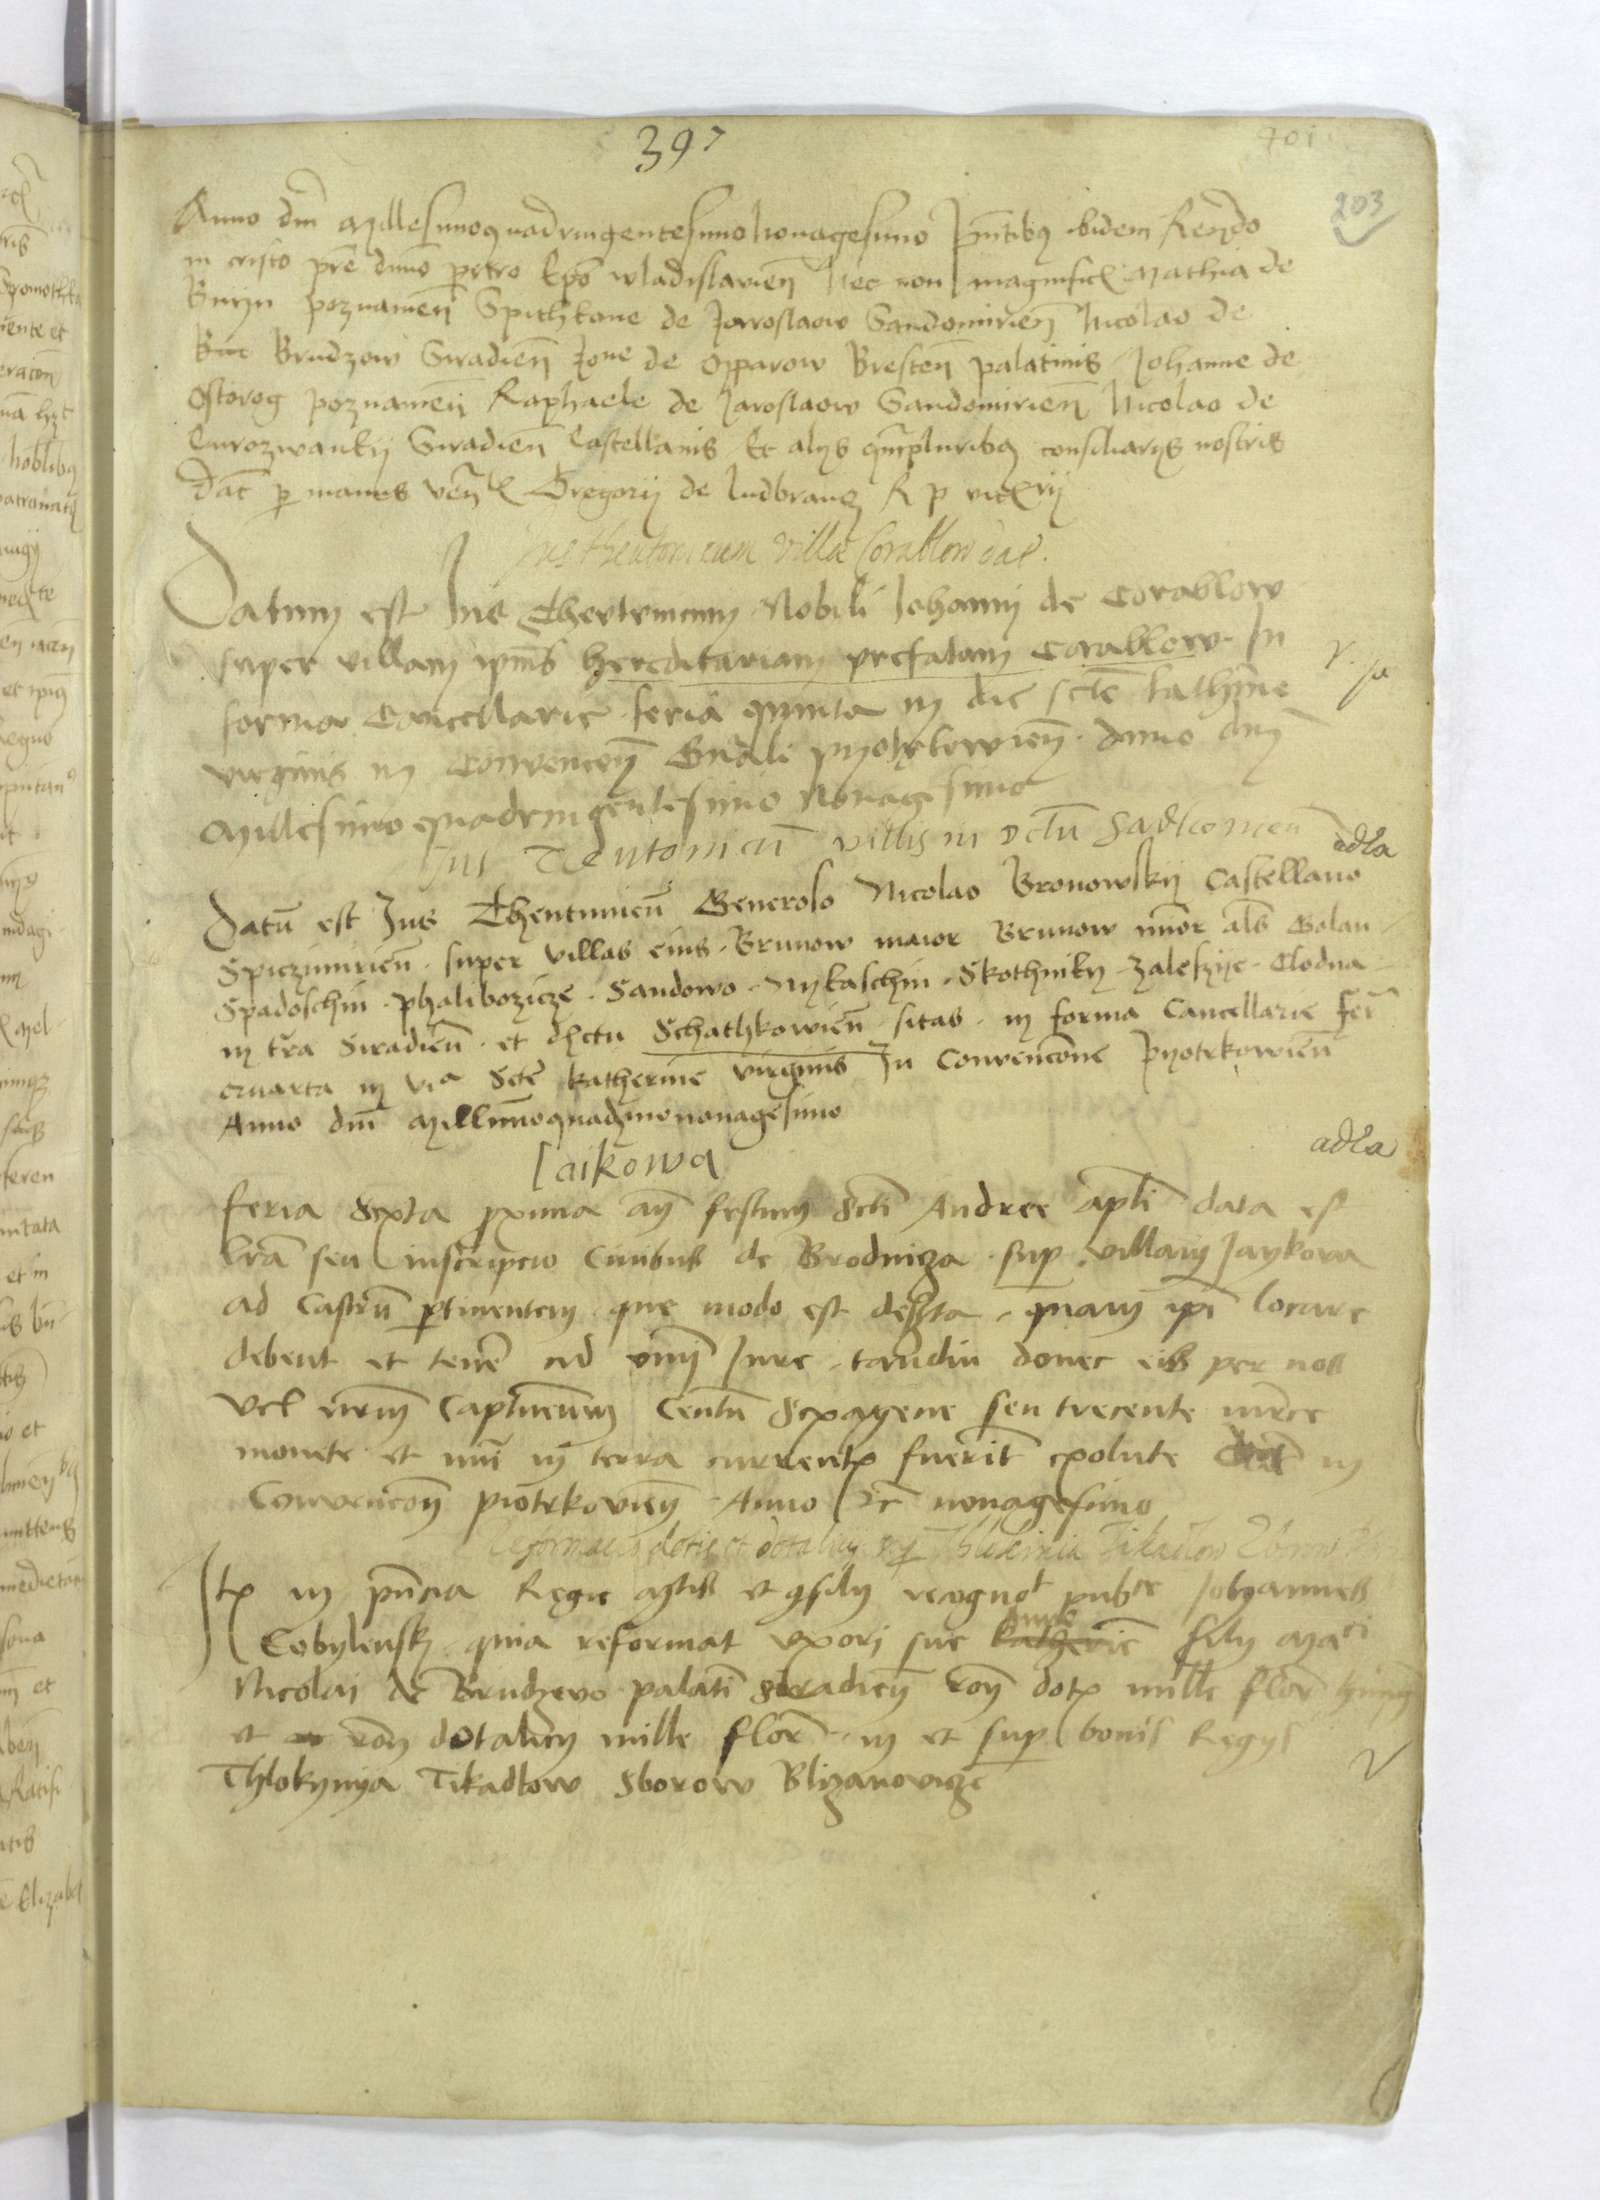 397
401
203
Anno dni Millesimoquadringentesimononagesimo Pntibq ibidem Rendo
in cristo pre dnno petro Epo wladislavien Nec non magnific Mathia de
Bnyn poznanien Spithkone de Jaroslaow Sandomirien Nicolao de
Brudzow Siradien Jone de Opparow Bresten palatinis Johanne de
Ostorog poznanien Raphaele de Jaroslaow Sandomirien Nicolao de
Curozwanky Siradien Castellanis Et alys qmpluribq consiliarys nostris
Dat p manus ven Gregorij de ludbrancz R p vicexrij
Jus theutonicum villae Corablow dat.
Datum est Jus Thevtunicum Nobili Johanni de Corablow
super villam ipius hereditariam prefatam Corablow In
forma Cancellarie feria quinta in die scte kathine
virginis in Convencon Gnali pyotrkowien Anno dni
Millesimo quadringentesimo Nonagesimo
Jus Teutonicu villis in Dctu Sadkowien
adla
Datu est Jus Theutunicu Generoso Nicolao Bronowsky Castellano
Spiczimirien super villas eius Brunow maior Brunow minor als Golan
Spadoschin phalibozicze Sandowo Mykaschin Skothniky Zaleszye Clodna
in tra Siradien et dstctu Schathkowien sitas in forma Cancellarie fer
quarta in via Scte katherine virginis In Convencone Pyotrkowien
Anno dni Millimoquadgmononagesimo
Jaikowa
adla
feria Sexta pxima an festum Scti Andree apli data est
lra seu inscripcio Civibus de Brodnicza sup villam Jaykova
ad Castru ptinentem que modo est deserta quam ipi locare
debent et tenere ad vnum Jure tandiu donec eis per nos
vel nrm Captineum Centu Sexagene seu trecente mrce
monete et nui in terra currentx fuerit exolute in
Convencon piotrkovien Anno etc nonagesimo
Reformacio dotis et dotalicii
Itx in pncia Regie Mtis et gsily recognot pubce Johannes
Cobylensky quia reformat vxori sue katherine Anne filie Maci
Nicolai de Brudzevo palati Siradien ron dotx mille flor
et ron dotalicy mille flor in et sup bonis Regys
Thlokynya Tikadlow Sborow Blizanovicze